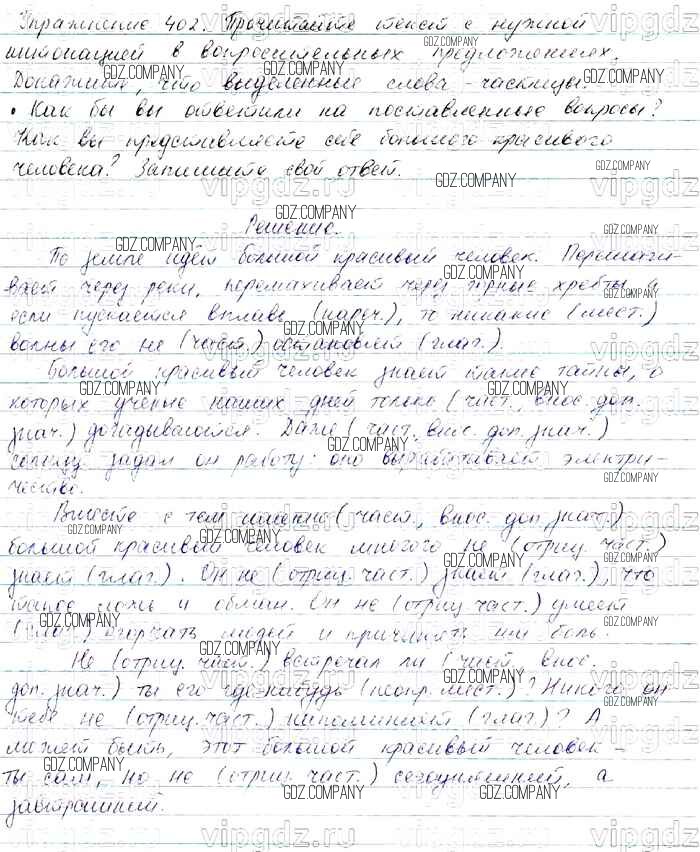 Упражнение 402. Прочитайте текст с нужной
интонацией в вопросительных предложениях.
Докажите, что выделенные слова - частицы.
• Как бы вы ответили на поставленные вопросы?
Как вы представляете себе большого красивого
человека? Запишите свой ответ.
Решение.
По земле идёт большой красивый человек. Перешаги-
вает через реки, перемахивает через горные хребты, и
если пускается вплавь (нареч.), то никакие (мест.)
волны его не (част.) остановят (глаг.).
Большой красивый человек знает такие тайны, о
которых учёные наших дней только (част., внос. доп.
знач.) догадываются. Даже (част., внос. доп. знач.)
солнцу задал он работу: оно вырабатывает электри-
чество.
Вместе с тем именно (част., внос. доп. знач.)
большой красивый человек многого не (отриц. част.)
знает (глаг.). Он не (отриц. част.) знает (глаг.), что
такое ложь и обман. Он не (отриц. част.) умеет
(глаг.) огорчать людей и причинять им боль.
Не (отриц. част.) встречал ли (част., внос.
доп. знач.) ты его где-нибудь (неопр. мест.)? Никого он
тебе не (отриц. част.) напоминает (глаг.)? А
может быть, этот большой красивый человек -
ты сам, но не (отриц. част.) сегодняшний, а
завтрашний.